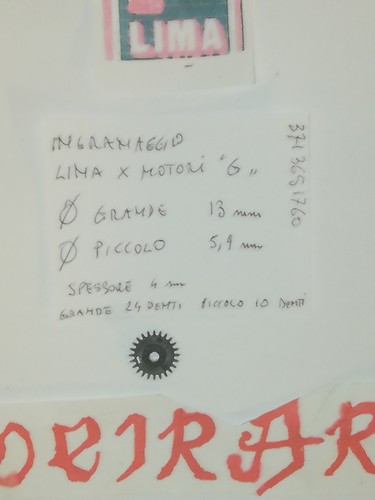 LIMA
INGRAMAGGIO
LIMA X MOTORI "G"
Ø GRANDE 13 mm
Ø PICCOLO 5,9 mm
SPESSORE 4 mm
GRANDE 24 DENTI PICCOLO 10 DENTI
371 3651760